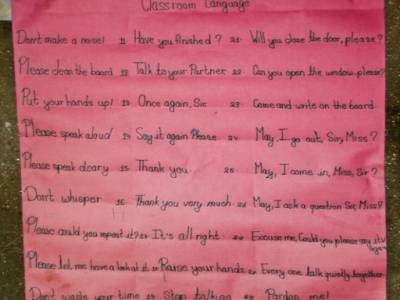 Classroom Language
Don't make a noise! 11 Have you finished? 21 Will you close the door, please?
Please clean the board 12 Talk to your Partner 22 Can you open the window please?
Put your hands up! 13 Once again, Sir 23 Come and write on the board.
Please speak aloud 14 Say it again Please 24 May, I go out, Sir, Miss?
Please speak cleary 15 Thank you 25 May, I come in, Miss, Sir?
Don't whisper 16 Thank you very much 26 May, I ask a question Sir, Miss?
Please could you repeat it? It's all right Excuse me, Could you please say it
Please let me have a look at it Raise your hands Every one talk quietly together
Don't waste your time Stop talking Pardon me!